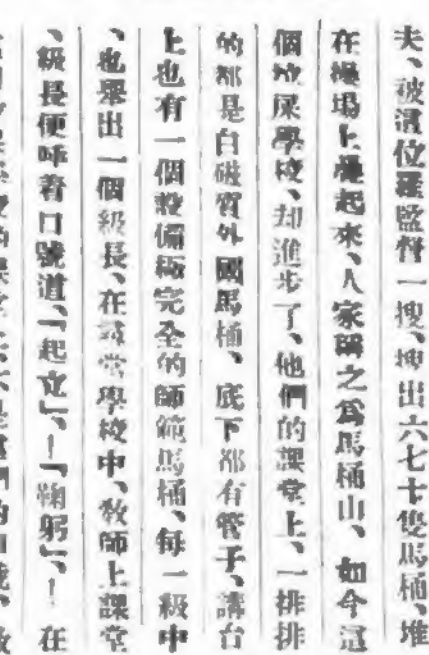 夫、被這位羅監督一搜、搜出六七十隻馬桶、堆
在操場上堆起來、人家稱之爲馬桶山、如今這
個放屎學校、却進步了、他們的課堂上、一排排
的都是白磁質外國馬桶、底下都有管子、講台
上也有一個設備極完全的師範馬桶、每一級中
、也舉出一個級長、在尋常學校中、教師上課堂
、級長便呼着口號道、「起立」、—「鞠躬」、—在